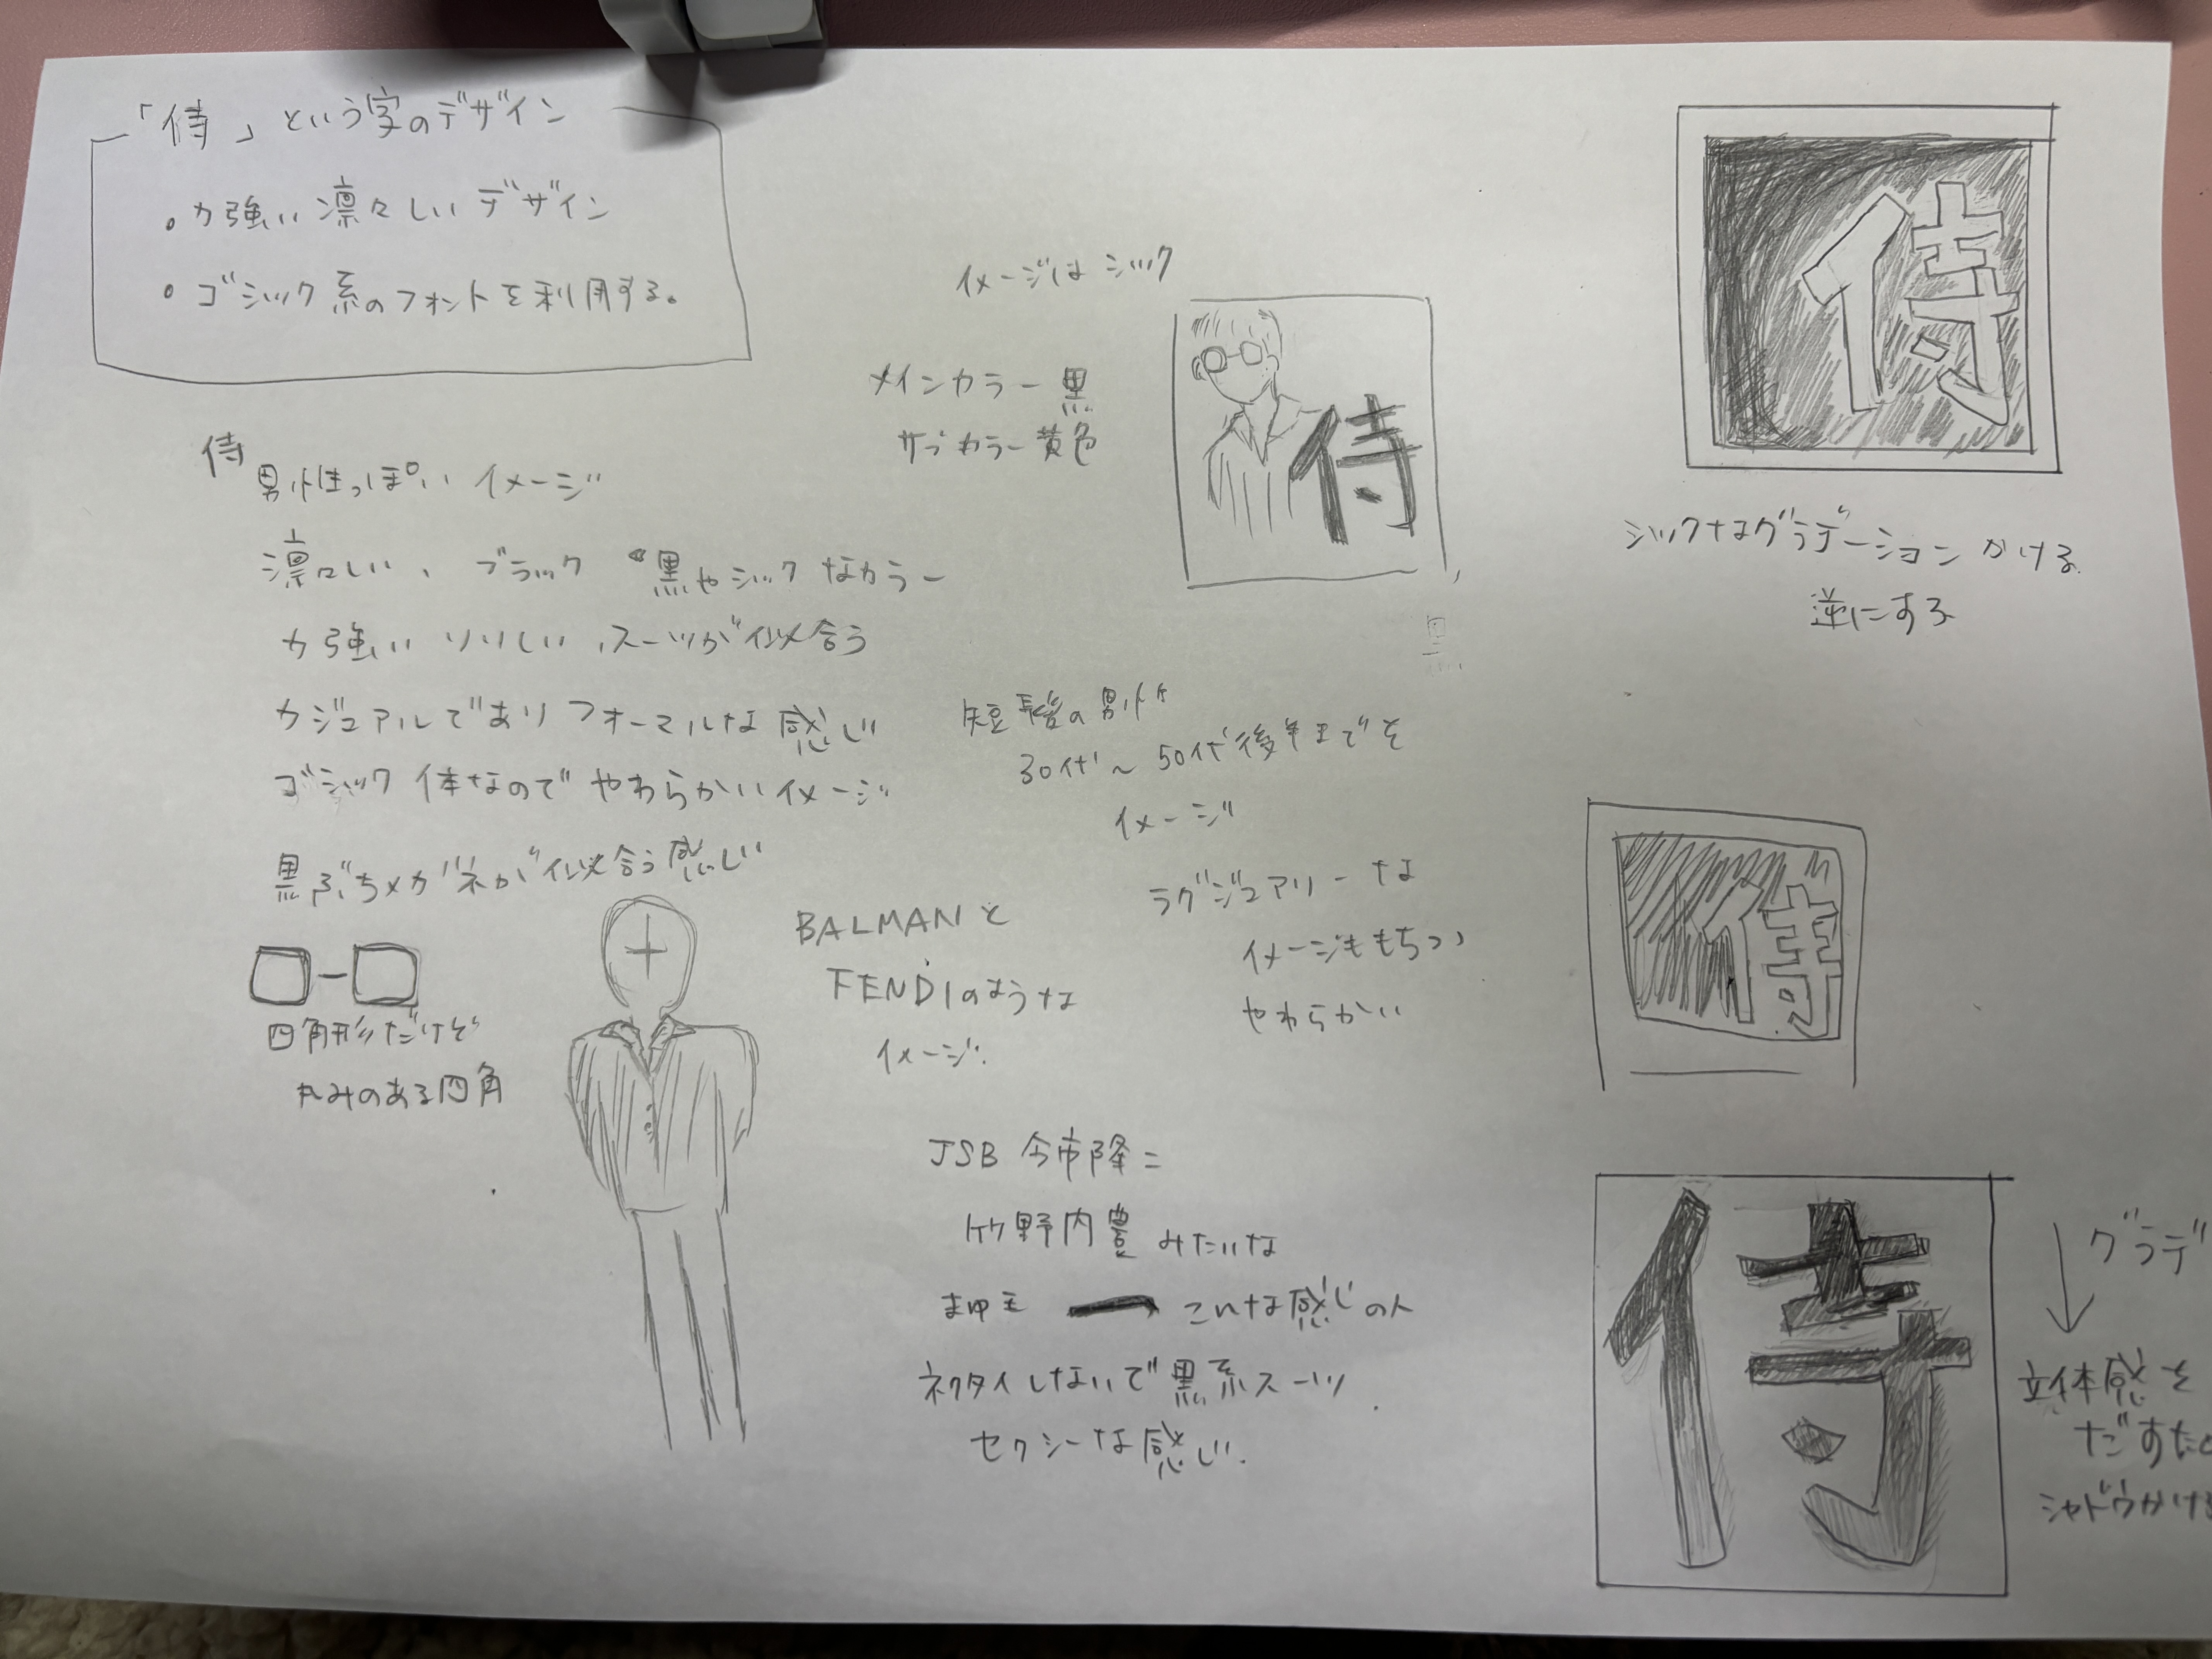 「侍」という字のデザイン
。力強い凛々しいデザイン
。ゴシック系のフォントを利用する。
侍
男性っぽい イメージ
凛々しい、ブラック 黒やシックなカラー
力強い りりしい 、スーツが似合う
カジュアルでありフォーマルな感じ
ゴシック体なのでやわらかいイメージ
黒ぶちメガネが似合う感じ
四角形だけど
丸みのある四角
イメージはシック
メインカラー黒
サブカラー黄色
侍
黒
短髪の男性
30代〜50代後半までを
イメージ
ラグジュアリーな
イメージももちつつ
やわらかい
BALMANと
FENDIのような
イメージ.
JSB 今市隆二
竹野内豊みたいな
まゆも こんな感じの人
ネクタイしないで黒系スーツ
セクシーな感じ.
侍
シックなグラデーションかける
逆にする
侍
侍
グラデ
立体感を
だすため
シャドウかける